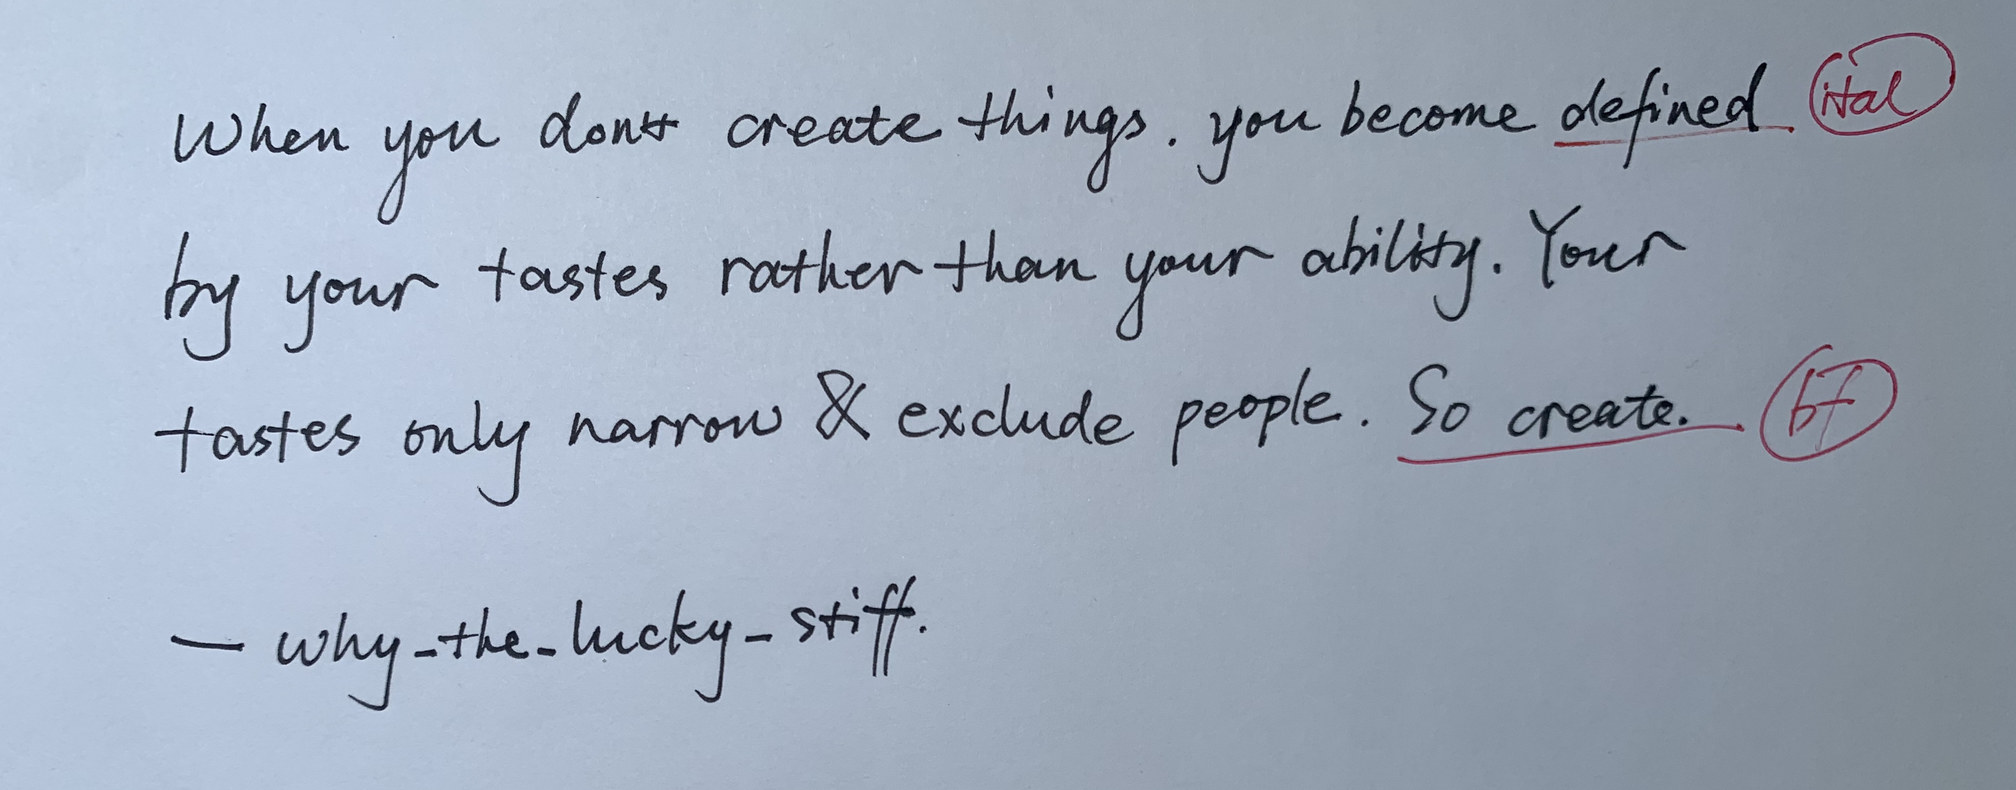 When you don't create things. you become defined ital
by your tastes rather than your ability. Your
tastes only narrow & exclude people. So create. bf
— why_the_lucky_stiff.